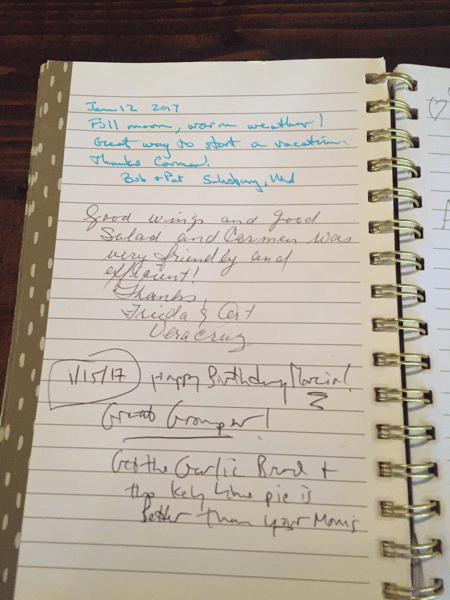 Jan 12 2017
Full moon, warm weather!
Great way to start a vacation.
Thanks Carmen!
Bob & Pat Salisbury, Md
Good wings and good
Salad and Carmen was
very friendly and
efficient!
Thanks,
Frieda & Art
Veracruz
1/15/17 Happy Birthday Marcia!
Great Grouper!
Get the Garlic Bread +
the Key Lime pie is
Better than your Mom's